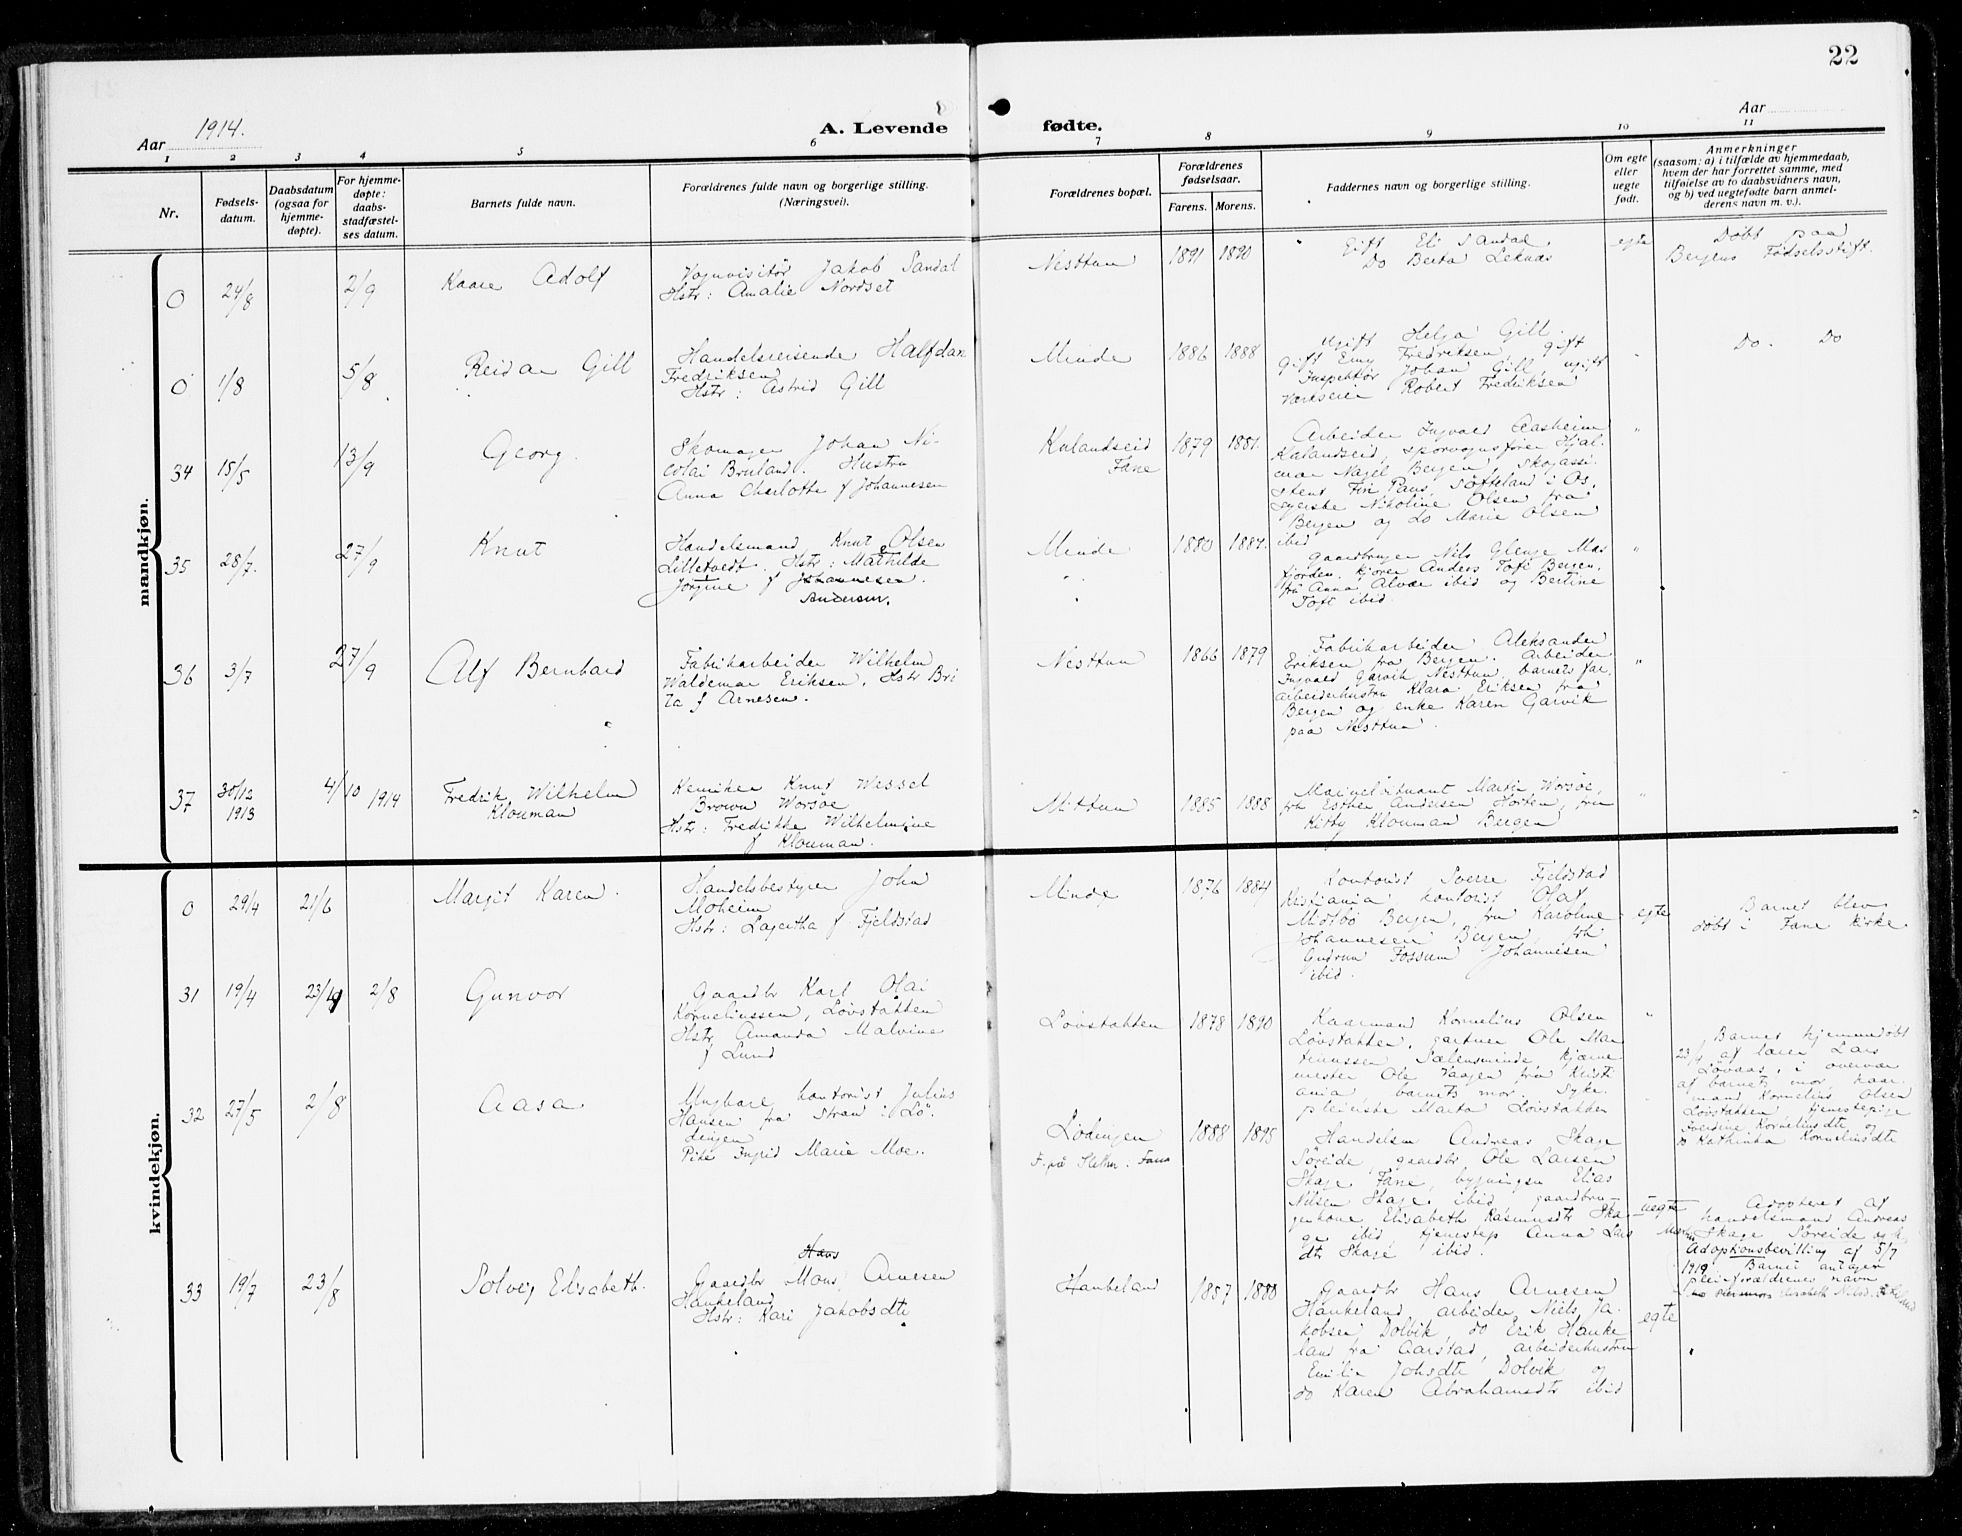 22
Aar 1914.
A. Levende fødte.
Aar
1 2 3 4 5 6 7 8 9 10 11
Nr.
Fødsels-
datum.
Daabsdatum
(ogsaa for
hjemme-
døpte).
For hjemme-
døpte:
daabs-
stadfæstel-
ses datum.
Barnets fulde navn.
Forældrenes fulde navn og borgerlige stilling.
(Næringsvei).
Forældrenes bopæl.
Forældrenes
fødselsaar.
Farens. Morens.
Faddernes navn og borgerlige stilling.
Om egte
eller
uegte
født.
Anmerkninger
(saasom: a) i tilfælde av hjemmedaab,
hvem der har forrettet samme, med
tilføielse av to daabsvidners navn,
og b) ved uegtefødte barn anmel-
derens navn m. v.).
mandkjøn.
0 24/8 2/9 Kaare Adolf
Vognvisitør Jakob Sandal
Hstr: Amalie Nordset
Nesttun 1891 1890
Gift Eli Sandal
Do Berta Leknes
egte
Døbt paa
Bergens Fødselsstift.
0 1/8 5/8 Reidar Gill
Handelsreisende Halfdan
Fredriksen
Hstr: Astrid Gill
Minde 1886 1888
Ugift Helga Gill.
gift Emy Fredriksen, gift
Inspektør Johan Gill, ugift
Værkseier Robert Fredriksen
"
Do. Do
34 15/5 13/9 Georg.
Skomager Johan Ni-
colai Bruland. Hustru
Anna Charlotte f Johannesen
Kalandseid
Fane
1879 1881.
Arbeider Ingvald Aasheim
Kalandseid, sporvognsfører Hjal-
mar Nagel Bergen, Skogassi-
stent Finn Paus, Søfteland i Os,
syerske Nikoline Olsen fra
Bergen og do Marie Olsen
ibid
"
35 28/7. 27/9 Knut
Handelsmand Knut Olsen
Lilletvedt. Hstr: Mathilde
Jørgine f Johannesen.
Andersen.
Minde 1880 1887.
gaardbruger Nils Glenje Mas
fjorden, kjører Anders Toft Bergen.
frk Anna Alvær ibid og Bertine
Toft ibid
"
36 3/7 27/9 Alf Bernhard
Fabrikarbeider Wilhelm
Waldemar Eriksen. Hstr Bri
ta f Arnesen.
Nesttun 1866 1879
Fabrikarbeider Aleksander
Eriksen fra Bergen. Arbeider
Ingvald Garvik Nesttun, barnets far,
arbeiderhustru Klara Eriksen fra
Bergen og enke Karen Garvik
paa Nesttun.
"
37 30/12 1913 4/10 1914
Fredrik Wilhelm
Klouman
Kemiker Knut Wessel
Brown Worsøe
Hstr: Fredrikke Wilhelmine
f Klouman.
Mittun 1885 1888
Martin Worsøe,
frk Esther Andersen Horten, fru
Kitty Klouman Bergen
"
kvindekjøn.
0 29/4 21/6 Margit Karen.
Handelsbestyrer John
Moheim
Hstr: Lagertha f. Fjeldstad
Minde 1876 1884
Kontorist Sverre Fjeldstad
Kristiania, kontorist Olaf
Midtbø Bergen, fru Karoline
Johannesen Bergen, frk
Gudrun Fossum Johannesen
ibid.
egte
Barnet blev
døbt i Fane kirke
31 19/4 23/4 2/8 Gunvor
Gaardbr Karl Olai
Korneliussen, Løvstakken
Hstr Amanda Malvine
f Lund
Løvstakken 1878 1890
Kaarmand Kornelius Olsen
Løvstakken, gartner Ole Mar
tinussen Sælensminde, kjærne
mester Ole Vaagen fra Kristi
ania barnets mor. Syke
pleierske Marta Løvstakken
"
Barnet hjemmedøbt
23/4 af lærer Lars
Løvaas, i overvær
af barnets mor, kaar
mand Kornelius Olsen
Løvstakken, tjenestepige
Kornelusdtr og
do Kathinka Kornelusdtr
32 27/5 2/8 Aasa
Ungkarl kontorist Julius
Hansen fra Strand i Lø-
dingen
Pike Ingrid Marie Moe.
Lødingen
1888 1895
Handelsm Andreas Skage
Søreide, gaardbr Ole Larsen
Skage Fane, bygningsn Elias
Nilsen Skage ibid gaardbru-
gerkone Elisabeth Rasmusdtr Ska-
ge ibid, tjenestep Anna Lars
dtr Skage ibid.
uegte
Adopteret af
handelsmand Andreas
Skage Søreide og h
Adoptionsbevilling af 5/7
1919. Barnet antager
pleieforældrenes navn
33 19/7 23/8 Solveig Elisabeth.
Hans
Gaardbr Mons Arnesen
Haukeland
Hstr: Kari Jakobsdtr
Haukeland 1857 1880
Gaardbr Hans Arnesen
Haukeland arbeider Niels Ja-
kobsen Dolvik, do Erik Hauke
land fra Aarstad, arbeiderhustru
Emilie Johsdtr Dolvik og
do Karen Abrahamsdtr ibid
egte